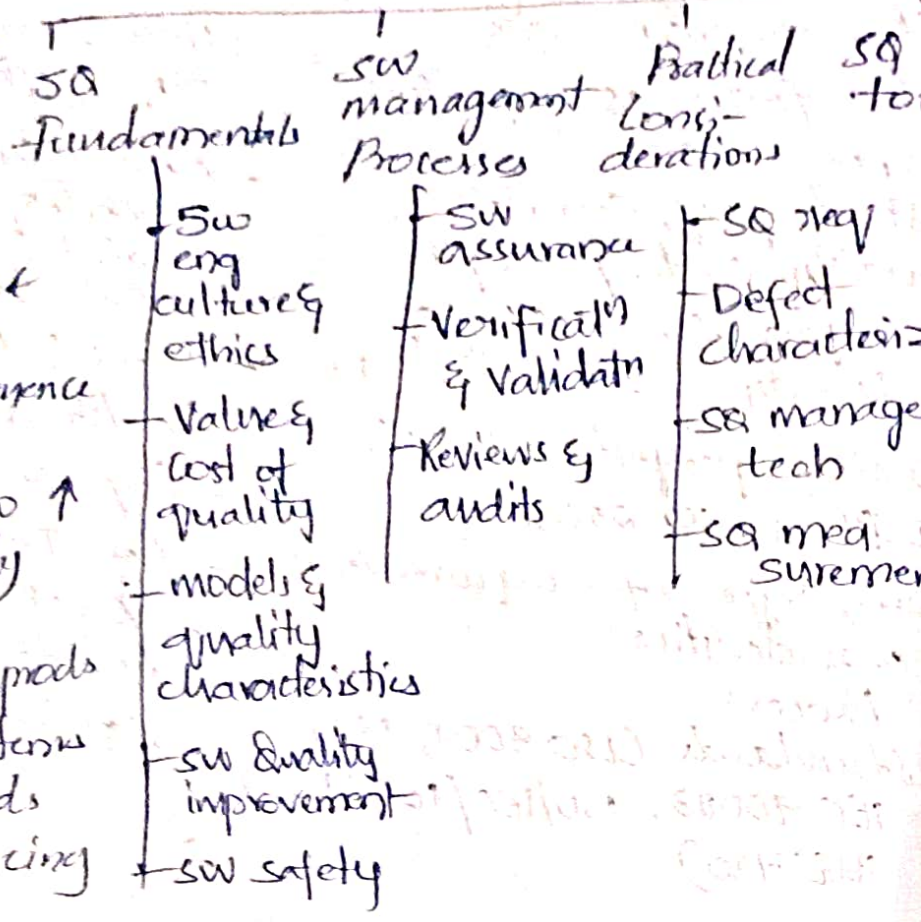 SQ
Fundamentals
SW
management
Processes
Practical
Consi-
derations
SQ
to
SW
eng
culture &
ethics
Value &
Cost of
quality
models &
quality
characteristics
SW Quality
improvement
SW safety
SW
assurance
Verificatn
& Validatn
Reviews &
audits
SQ req
Defect
characteriz
SQ manage
tech
SQ mea
suremen
prods
ds